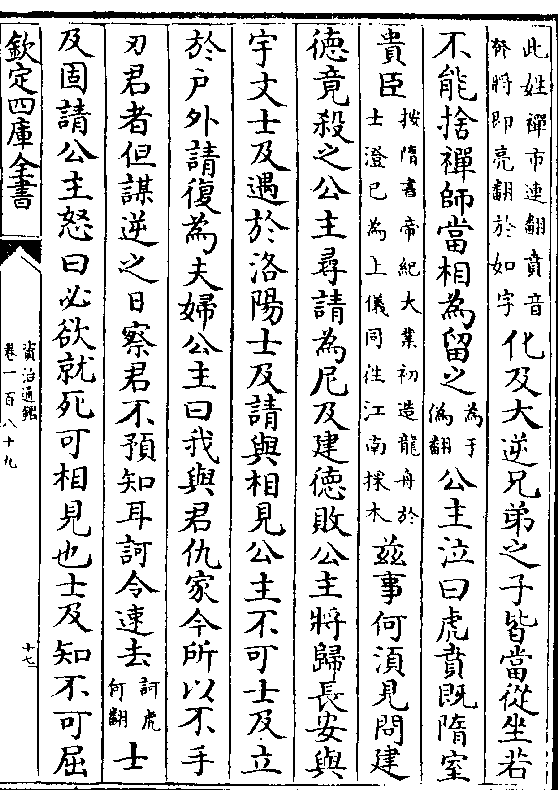 此姓禪市連翻賁音
奔將即亮翻於如字
化及大逆兄弟之子皆當從坐若
不能捨禪師當相為留之
為于
偽翻
公主泣曰虎賁既隋室
貴臣
按隋書帝紀大業初造龍舟於
士澄已為上儀同往江南採木
兹事何須見問建
德竟殺之公主尋請為尼及建德敗公主將歸長安與
宇文士及遇於洛陽士及請與相見公主不可士及立
於户外請復為夫婦公主曰我與君仇家今所以不手
刃君者但謀逆之日察君不預知耳訶令速去
訶虎
何翻
士
及固請公主怒曰必欲就死可相見也士及知不可屈
欽定四庫全書
資治通鑑
卷一百八十九
十七